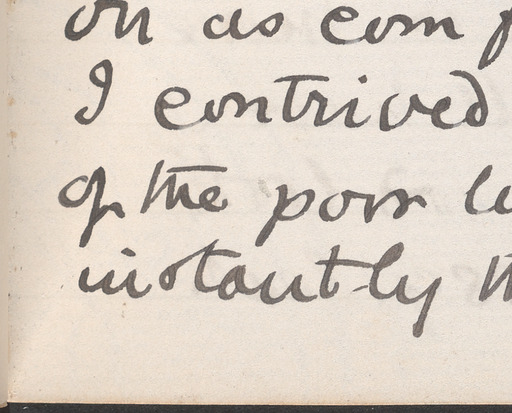 on as com
I contrived
of the poor
instantly